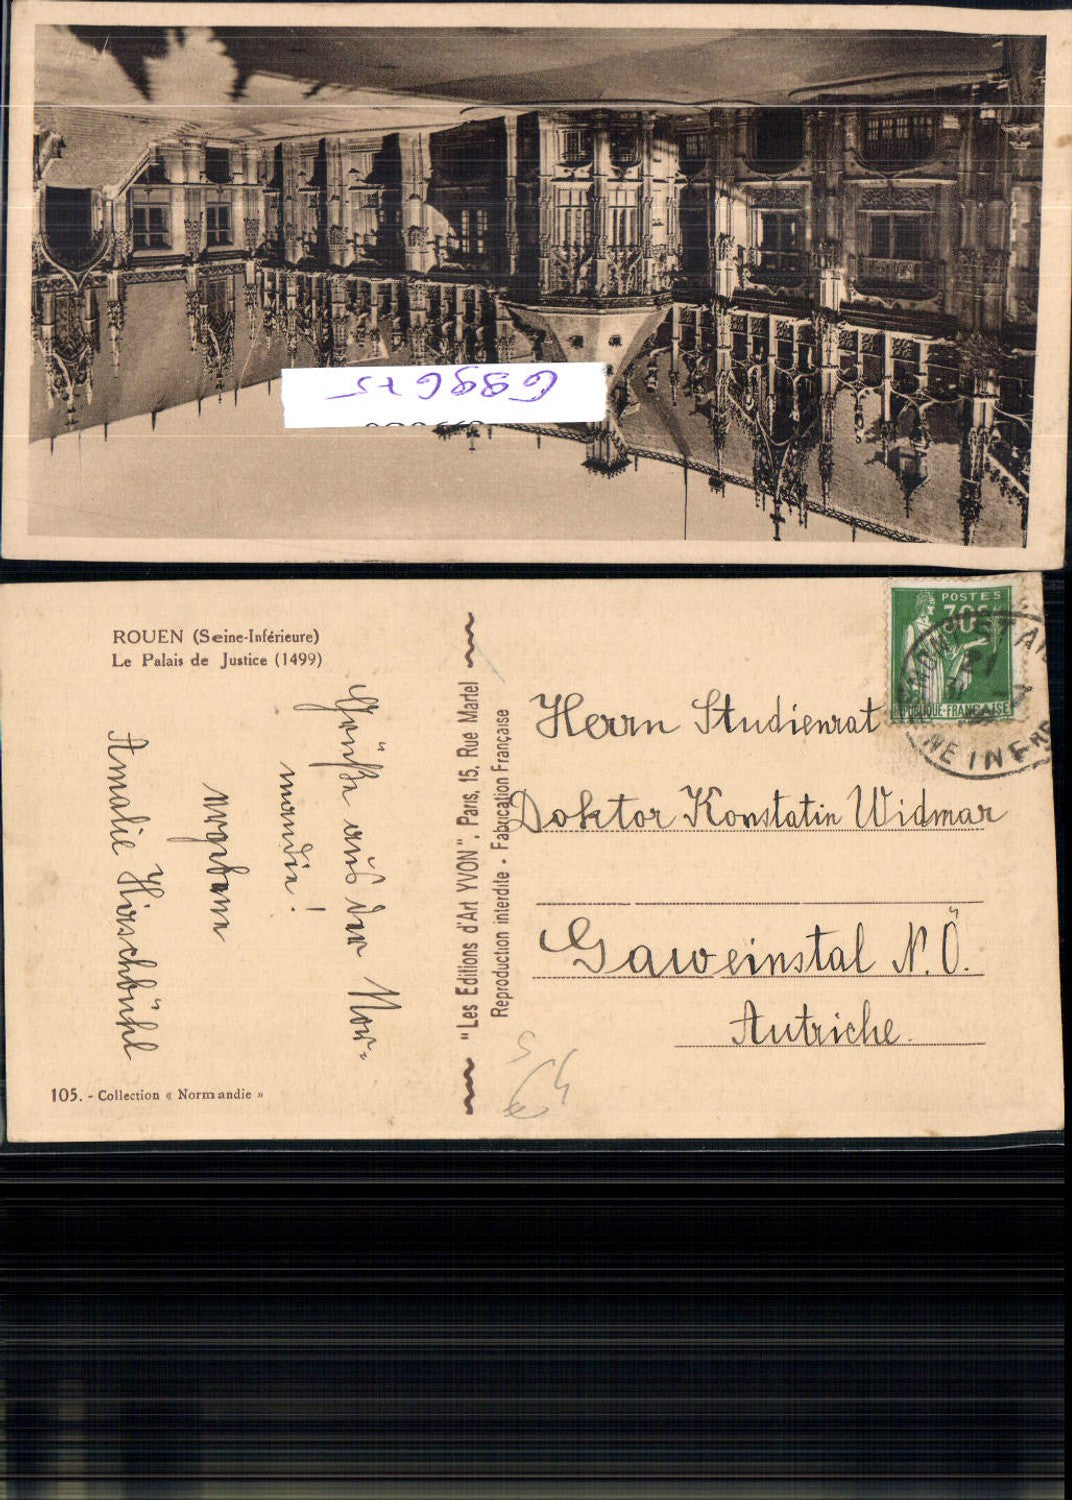 699675
ROUEN (Seine-Inférieure)
Le Palais de Justice (1499)
Grüße aus der Nor-
mandie!
ergebene
Amalie Hirschbühl
105. - Collection « Normandie »
"Les Editions d'Art YVON", Paris, 15, Rue Martel
Reproduction interdite - Fabrication Française
POSTES
30c
REPUBLIQUE-FRANÇAISE
Herrn Studienrat
Doktor Konstatin Widmar
Gaweinstal N.Ö.
Autriche.